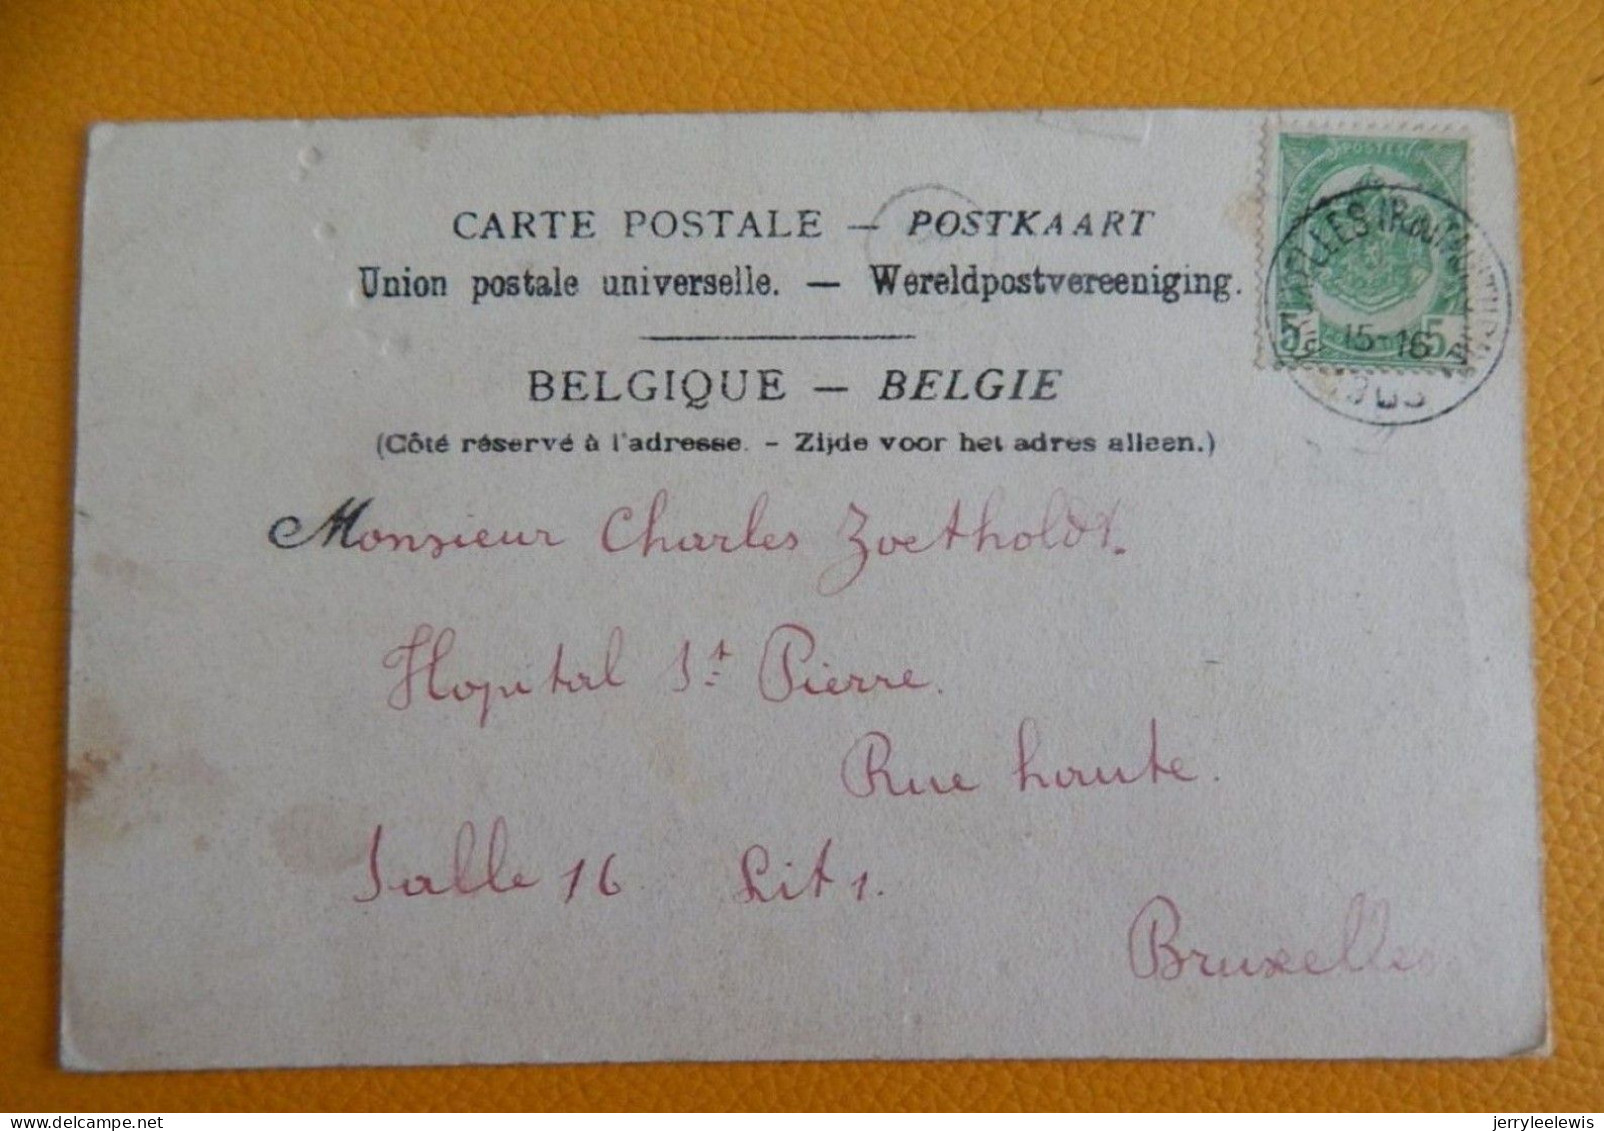 CARTE POSTALE — POSTKAART
Union postale universelle. — Wereldpostvereeniging.
BELGIQUE — BELGIE
(Côté réservé à l'adresse. - Zijde voor het adres alleen.)
POSTEN
5 5
15-16
Monsieur Charles Zoetholdt.
Hopital St Pierre.
Rue haute.
Salle 16 Lit 1.
Bruxelles
jerryleelewis